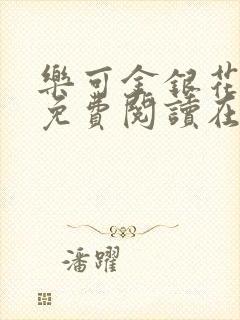 樂可金銀花
免費閱讀在
潘躍